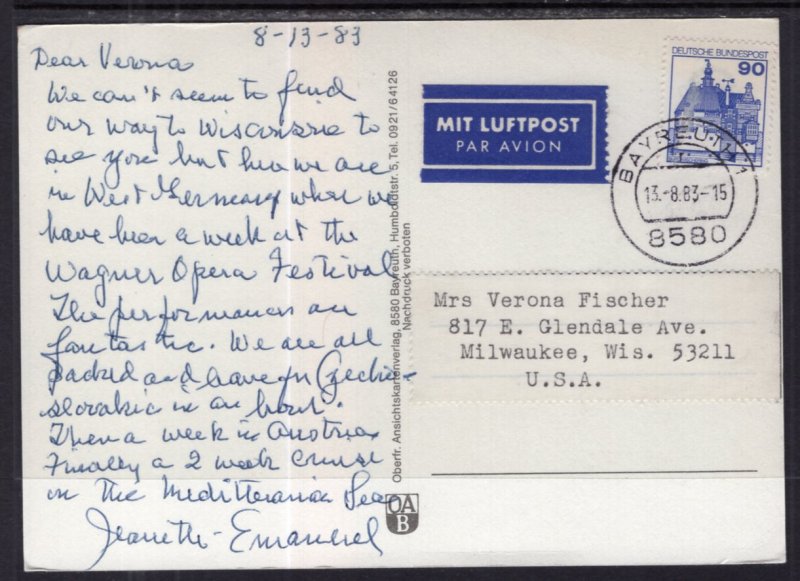 8-13-83
Dear Verona
We can't seem to find
our way to Wisconsin to
see you but here we are
in West Germany where we
have been a week at the
Wagner Opera Festival
The performances are
fantastic. We are all
packed and leave for Czecho-
slovakia in an hour.
Then a week in Austria
Finally a 2 week cruise
on the Meditteranian Sea
Jeanette - Emanuel
Oberfr. Ansichtskartenverlag, 8580 Bayreuth, Humboldtstr. 5, Tel. 0921/64126
Nachdruck verboten
OA
B
MIT LUFTPOST
PAR AVION
DEUTSCHE BUNDESPOST
90
BAYREUTH 1
13.-8.83-15
8580
Mrs Verona Fischer
817 E. Glendale Ave.
Milwaukee, Wis. 53211
U.S.A.